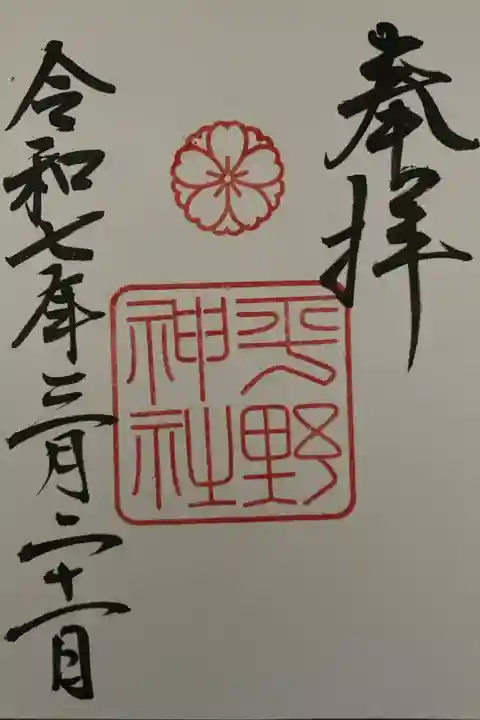 奉拝
平野
神社
令和七年三月二十一日